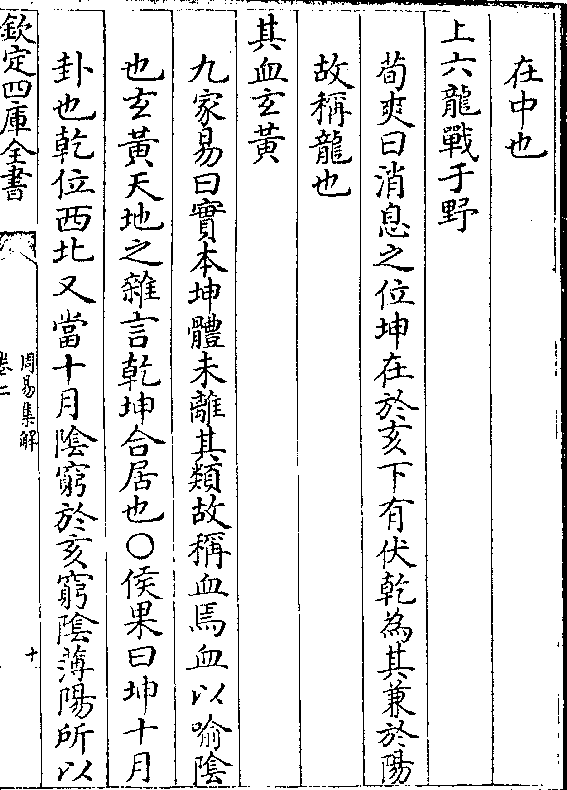 在中也
上六龍戰于野
荀爽曰消息之位坤在於亥下有伏乾為其兼於陽
故稱龍也
其血玄黃
九家易曰實本坤體未離其類故稱血焉血以喻陰
也玄黃天地之雜言乾坤合居也〇侯果曰坤十月
卦也乾位西北又當十月陰窮於亥窮陰薄陽所以
欽定四庫全書
周易集解
卷二
十